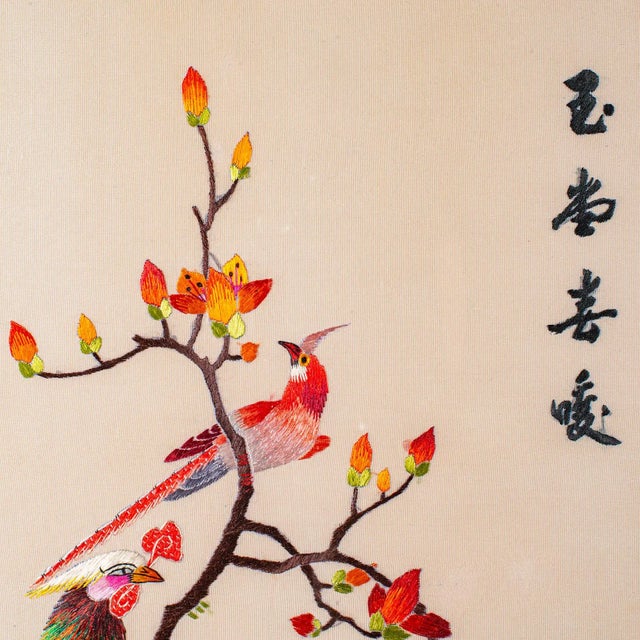 玉堂春暖